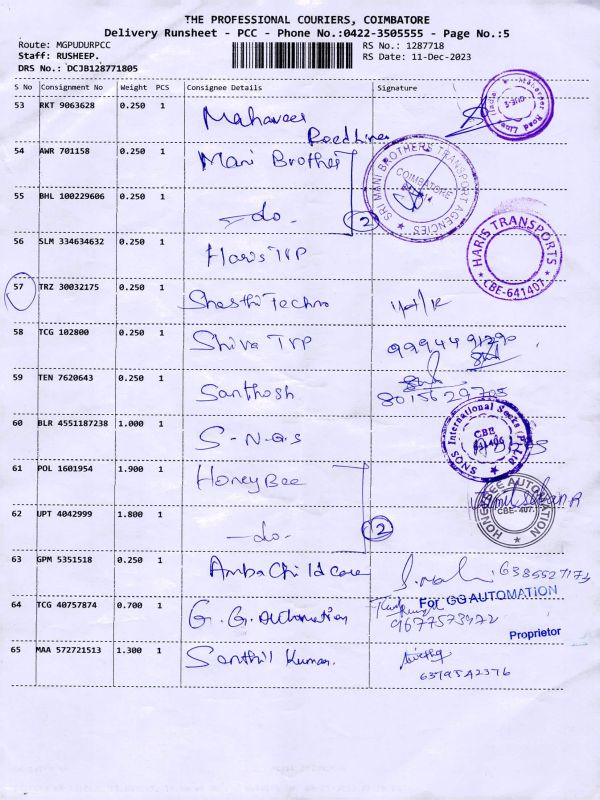 THE PROFESSIONAL COURIERS, COIMBATORE
Delivery Runsheet - PCC - Phone No.:0422-3505555 - Page No.:5
Route: MGPUDURPCC RS No.: 1287718
Staff: RUSHEEP. RS Date: 11-Dec-2023
DRS No.: DCJB128771805
S No Consignment No Weight PCS Consignee Details Signature
53 RKT 9063628 0.250 1 Mahaveer Roadlines
54 AWR 701158 0.250 1 Mani Brother
SRI MANI BROTHERS TRANSPORT AGENCIES
COIMBATORE
55 BHL 100229606 0.250 1 -do- 2
56 SLM 334634632 0.250 1 Haris TPP
HARIS TRANSPORTS
CBE-641407.
57 TRZ 30032175 0.250 1 Shasthi Techno
58 TCG 102800 0.250 1 Shiva TPP
59 TEN 7620643 0.250 1 Santhosh
60 BLR 4551187238 1.000 1 S-N-Q-S
SNQS International Socks (P) Ltd
CBE
61 POL 1601954 1.900 1 HoneyBee
HONEYBEE AUTOMATION
CBE- 407.
62 UPT 4042999 1.800 1 -do- 2
63 GPM 5351518 0.250 1 Amba Child care
64 TCG 40757874 0.700 1 G.G. Automation
For GG AUTOMATION
Proprietor
65 MAA 572721513 1.300 1 Senthil Kumar.
6379542376